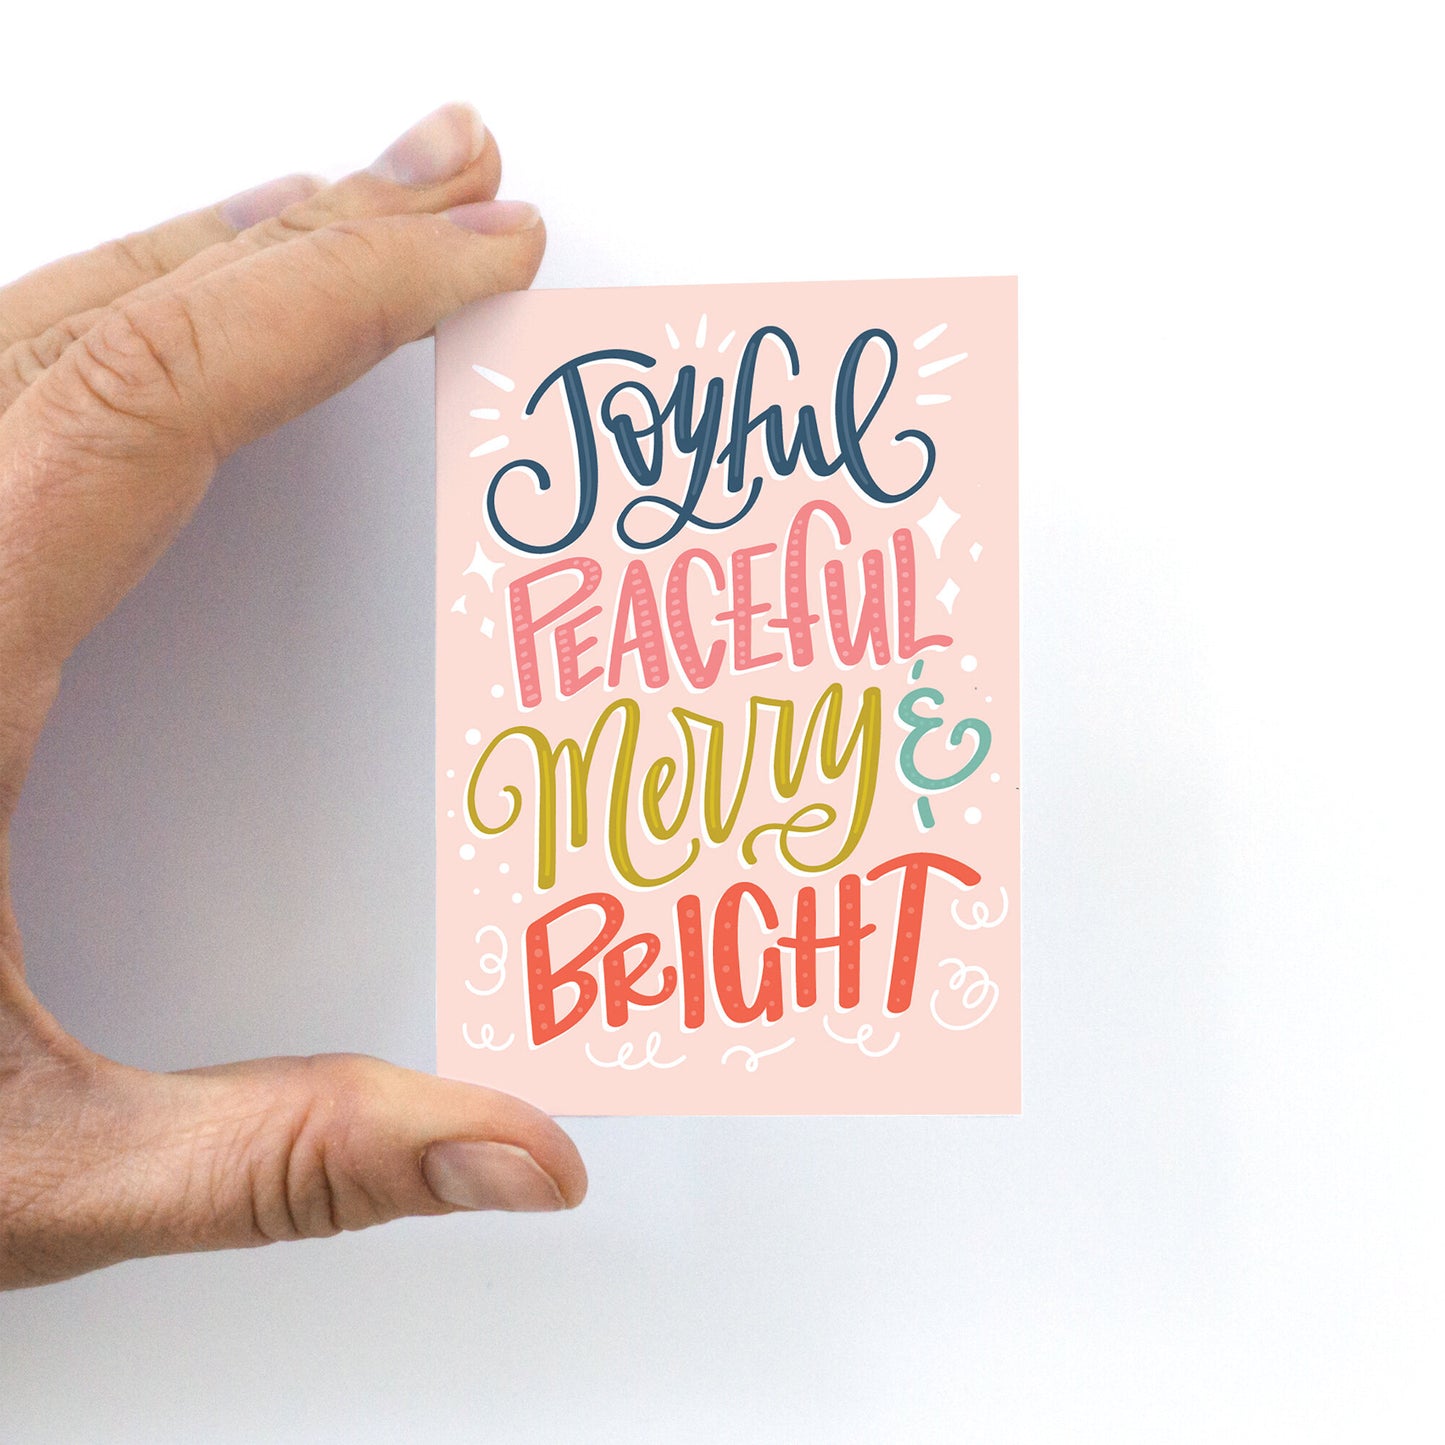 Joyful
PEACEfUL
Merry &
BRIGHT